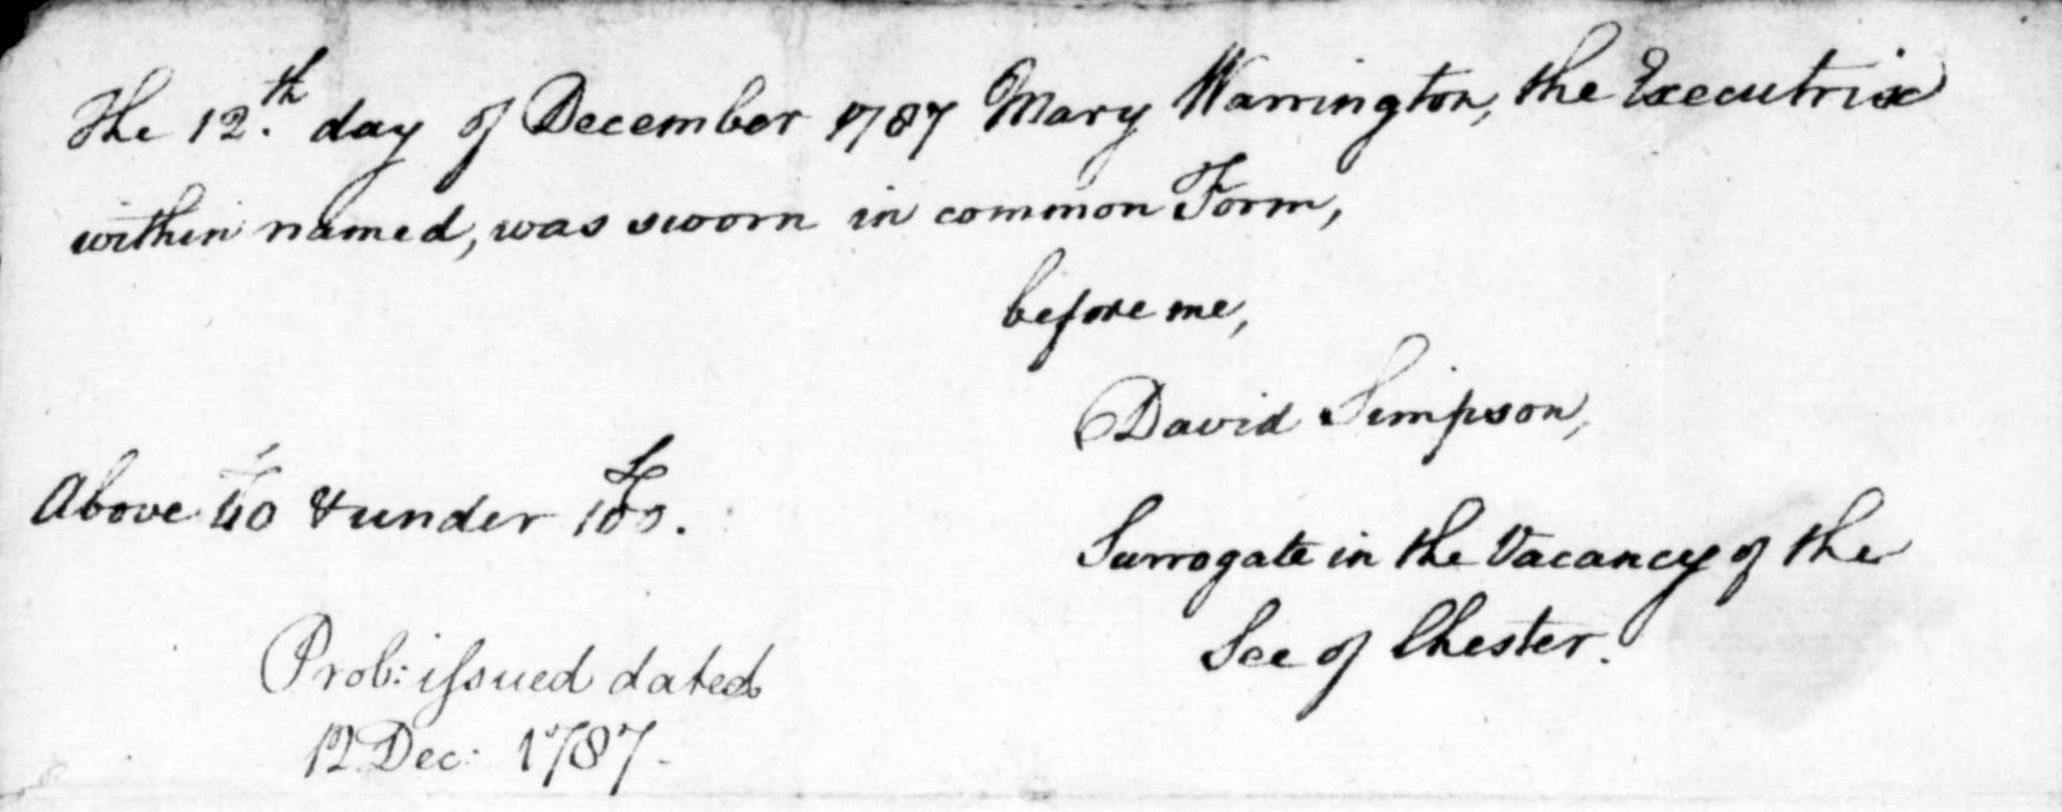 The 12.th day of December 1787 Mary Warrington, the Executrix
within named, was sworn in common Form,
before me,
David Simpson,
Above £40 & under £100.
Surrogate in the Vacancy of the
See of Chester.
Prob: issued dated
12 Dec: 1787.